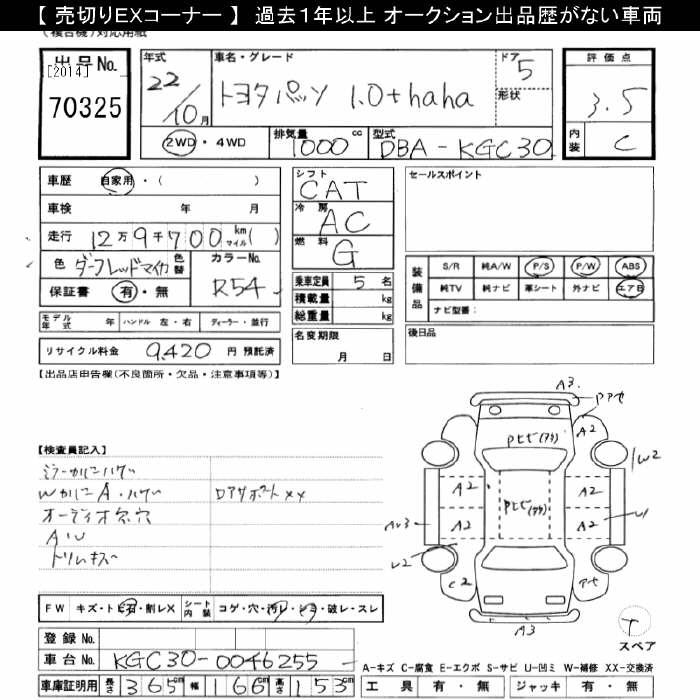 【 売切りEXコーナー 】 過去１年以上 オークション出品歴がない車両
(複合機)対応用紙
出品No.
[2014]
70325
年式
22/10月
車名・グレード
トヨタパッソ 1.0+hana
ドア
5
形状
評価点
3.5
内装
C
2WD・4WD
排気量
1000cc
型式
DBA-KGC30
車歴 自家用・( )
車検 年 月
走行 12万9千700km マイル( )
色 ダークレッドマイカ
色替
カラーNo.
R54
保証書 有・無
シフト
CAT
冷房
AC
燃料
G
乗車定員 5名
積載量 kg
総重量 kg
名変期限
月 日
セールスポイント
装備品
S/R 純A/W P/S P/W ABS
純TV 純ナビ 革シート 外ナビ エアB
ナビ型番：
後日品
モデル年式 年 ハンドル 左・右 ディーラー・並行
リサイクル料金 9,420 円 預託済
【出品店申告欄(不良箇所・欠品・注意事項等)】
【検査員記入】
オーディオ欠穴
AW
トリムキズ
A3
A2
W2
ピヒ(アウ)
A2
A2
A2
A2
U1
U2
C2
A3
FW キズ・トビ石・割レX
シート内装 コゲ・穴・汚レ・シミ・破レ・スレ
スペア
登録No.
車台No. KGC30-0046255
A-キズ C-腐食 E-エクボ S-サビ U-凹ミ W-補修 XX-交換済
車庫証明用 長さ 365cm 幅 166cm 高さ 153cm
工具 有・無 ジャッキ 有・無